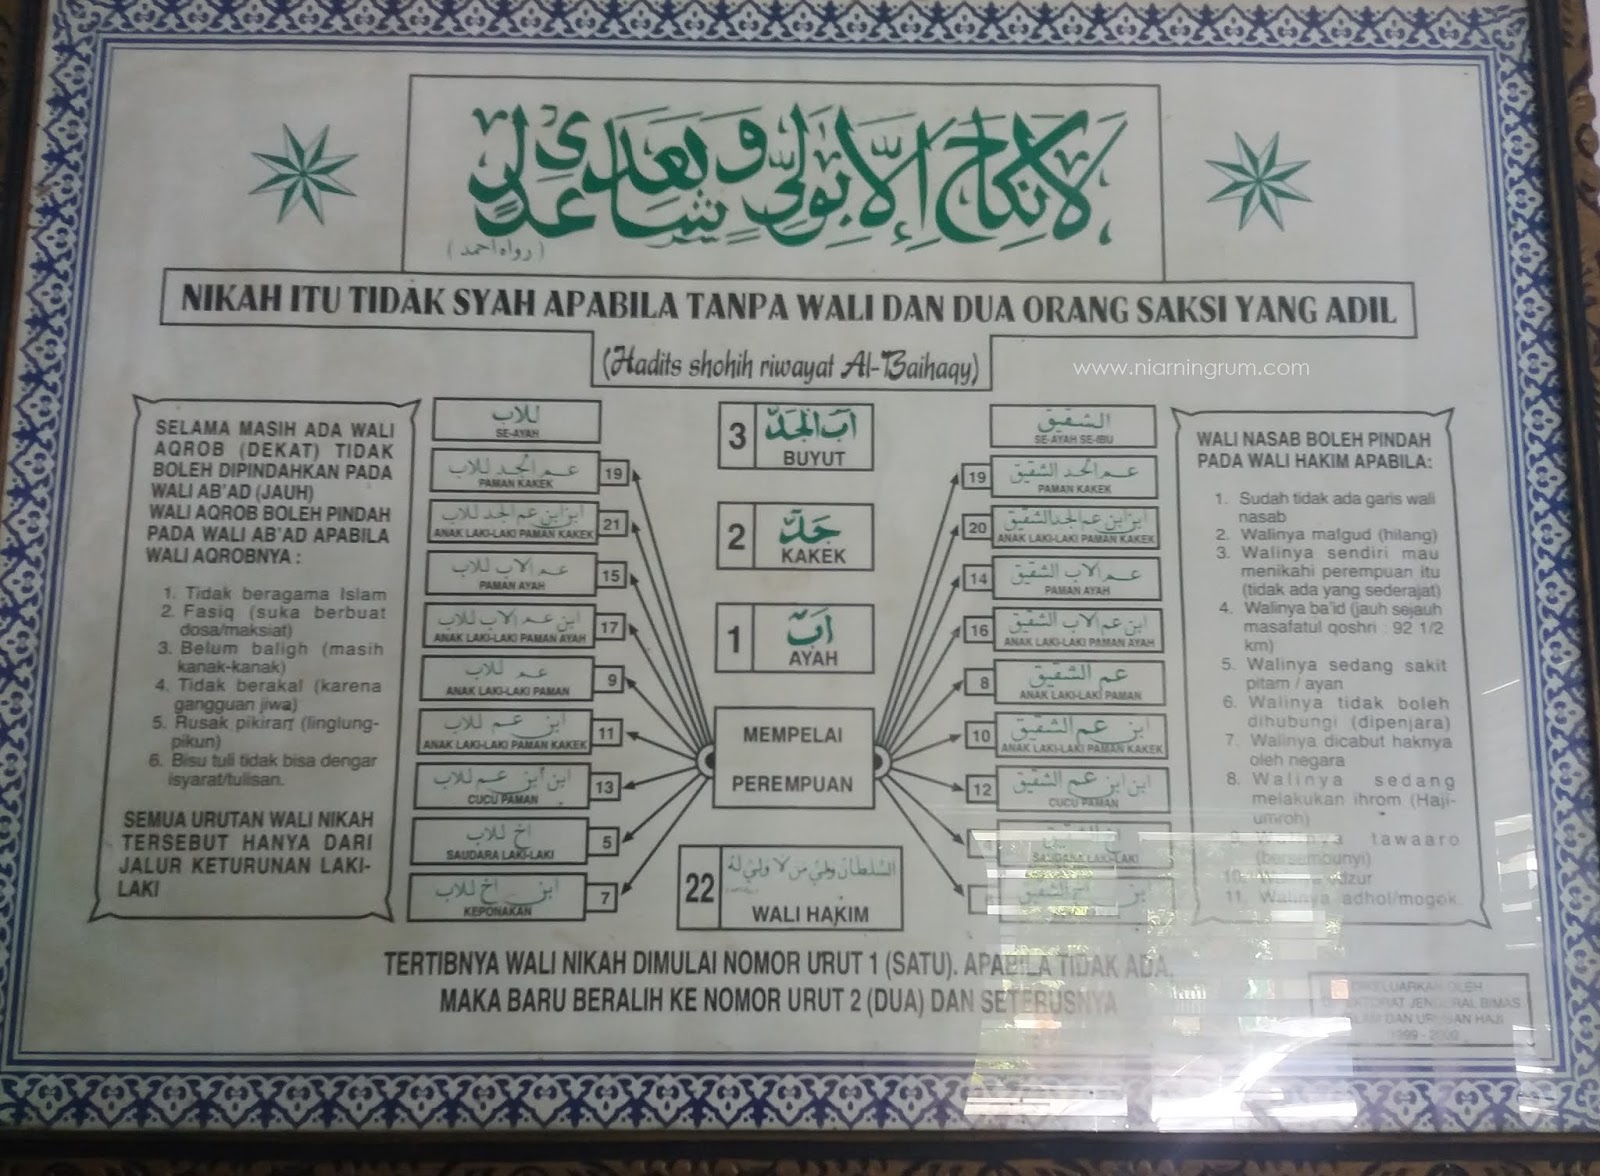 لا نكاح إلا بولي و شاهدي عدل
(رواه احمد)
NIKAH ITU TIDAK SYAH APABILA TANPA WALI DAN DUA ORANG SAKSI YANG ADIL
(Hadits shohih riwayat Al-Baihaqy)
www.niarningrum.com
SELAMA MASIH ADA WALI
AQROB (DEKAT) TIDAK
BOLEH DIPINDAHKAN PADA
WALI AB'AD (JAUH)
WALI AQROB BOLEH PINDAH
PADA WALI AB'AD APABILA
WALI AQROBNYA :
1. Tidak beragama Islam
2. Fasiq (suka berbuat
dosa/maksiat)
3. Belum baligh (masih
kanak-kanak)
4. Tidak berakal (karena
gangguan jiwa)
5. Rusak pikiran (linglung-
pikun)
6. Bisu tuli tidak bisa dengar
isyarat/tulisan.
SEMUA URUTAN WALI NIKAH
TERSEBUT HANYA DARI
JALUR KETURUNAN LAKI-
LAKI
للاب
SE-AYAH
عم الجد للاب
PAMAN KAKEK
19
ابن عم الجد للاب
ANAK LAKI-LAKI PAMAN KAKEK
21
عم الاب للاب
PAMAN AYAH
15
ابن عم الاب للاب
ANAK LAKI-LAKI PAMAN AYAH
17
عم للاب
ANAK LAKI-LAKI PAMAN
9
ابن عم للاب
ANAK LAKI-LAKI PAMAN KAKEK
11
ابن ابن عم للاب
CUCU PAMAN
13
اخ للاب
SAUDARA LAKI-LAKI
5
ابن اخ للاب
KEPONAKAN
7
3
اب الجد
BUYUT
2
جد
KAKEK
1
اب
AYAH
MEMPELAI
PEREMPUAN
السلطان ولي من لا ولي له
22
WALI HAKIM
الشقيق
SE-AYAH SE-IBU
19
عم الجد الشقيق
PAMAN KAKEK
20
ابن عم الجد الشقيق
ANAK LAKI-LAKI PAMAN KAKEK
14
عم الاب الشقيق
PAMAN AYAH
16
ابن عم الاب الشقيق
ANAK LAKI-LAKI PAMAN AYAH
8
عم الشقيق
ANAK LAKI-LAKI PAMAN
10
ابن عم الشقيق
ANAK LAKI-LAKI PAMAN KAKEK
12
ابن ابن عم الشقيق
CUCU PAMAN
اخ الشقيق
SAUDARA LAKI-LAKI
ابن اخ الشقيق
WALI NASAB BOLEH PINDAH
PADA WALI HAKIM APABILA:
1. Sudah tidak ada garis wali
nasab
2. Walinya mafgud (hilang)
3. Walinya sendiri mau
menikahi perempuan itu
(tidak ada yang sederajat)
4. Walinya ba'id (jauh sejauh
masafatul qoshri : 92 1/2
km)
5. Walinya sedang sakit
pitam / ayan
6. Walinya tidak boleh
dihubungi (dipenjara)
7. Walinya dicabut haknya
oleh negara
8. Walinya sedang
melakukan ihrom (Haji-
umroh)
9. Walinya tawaaro
(bersembunyi)
10.
11. Walinya adhol/mogok.
TERTIBNYA WALI NIKAH DIMULAI NOMOR URUT 1 (SATU). APABILA TIDAK ADA,
MAKA BARU BERALIH KE NOMOR URUT 2 (DUA) DAN SETERUSNYA
DIKELUARKAN OLEH
DIREKTORAT JENDERAL BIMAS
ISLAM DAN URUSAN HAJI
1999 - 2000